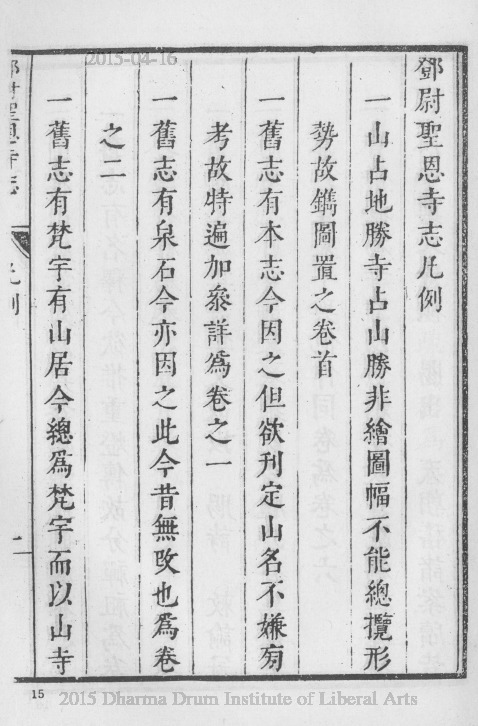 2015-04-16
鄧尉聖恩寺志凡例
一山占地勝寺占山勝非繪圖幅不能總攬形
勢故鐫圖置之卷首
一舊志有本志今因之但欲刊定山名不嫌旁
考故特遍加叅詳爲卷之一
一舊志有泉石今亦因之此今昔無改也爲卷
之二
一舊志有梵宇有山居今總爲梵宇而以山寺
15
2015 Dharma Drum Institute of Liberal Arts